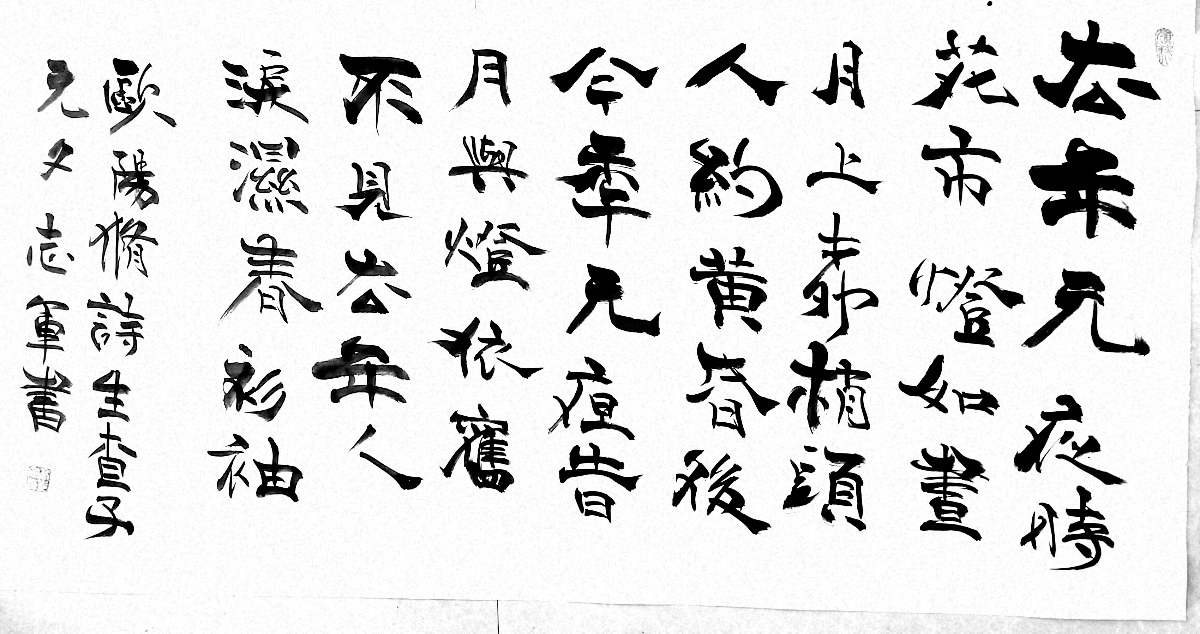 去年元夜時
花市燈如晝
月上柳梢頭
人約黃昏後
今秊元夜旹
月與燈依舊
不見去年人
淚濕春衫袖
歐陽脩詩生查子
元夕志軍書